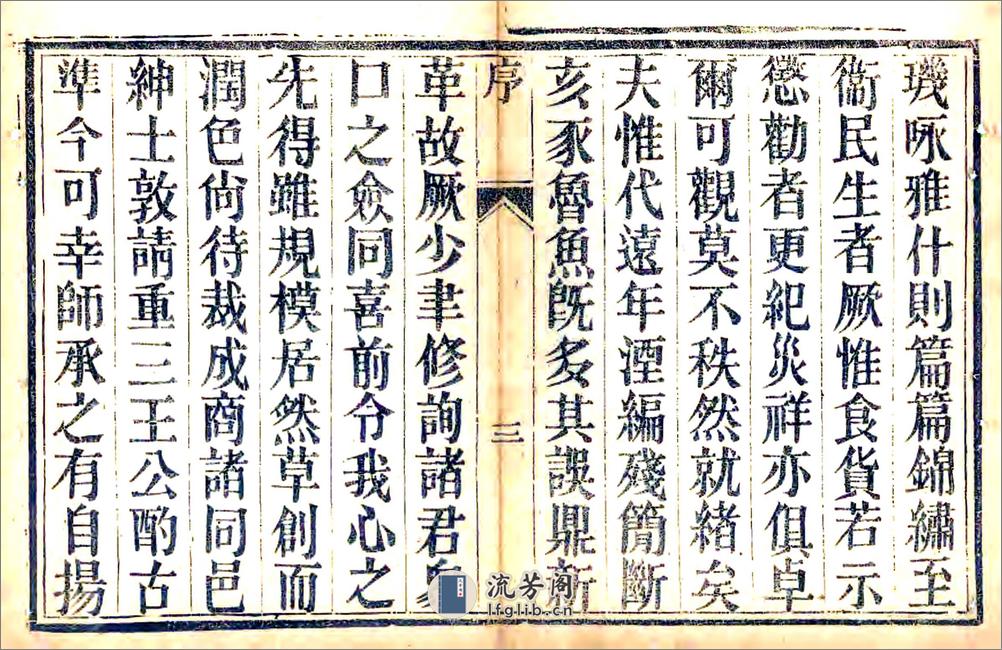 璣咏雅什則篇篇錦繡至
衞民生者厥惟食貨若示
懲勸者更紀災祥亦俱卓
爾可觀莫不秩然就緒矣
夫惟代遠年湮編殘簡斷
亥豕魯魚旣多其誤鼎新
序
三
革故厥少聿修詢諸君
口之僉同喜前令我心之
先得雖規模居然草創而
潤色尙待裁成商諸同邑
紳士敦請重三王公酌古
準今可幸師承之有自揚
流芳阁
lfglib.cn